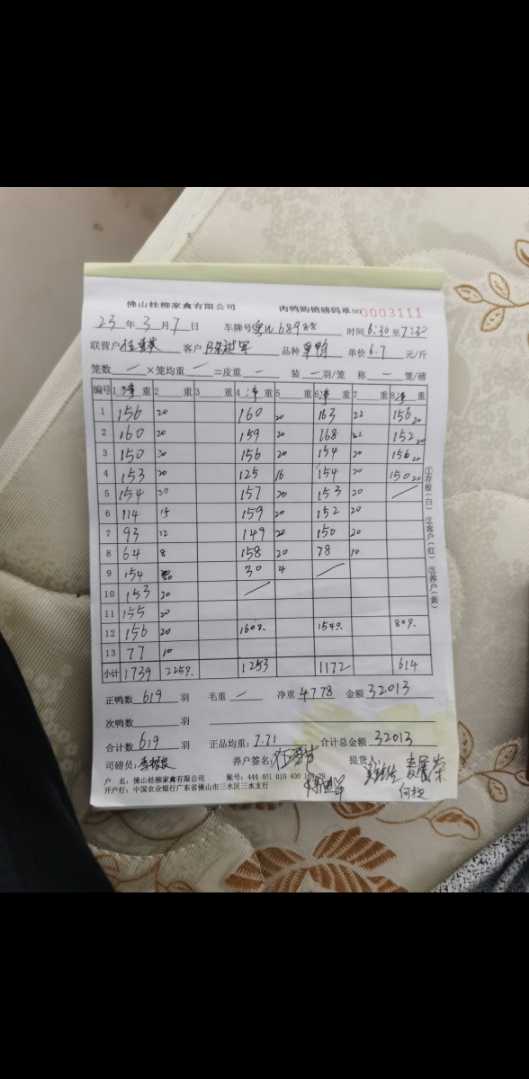 佛山桂柳家禽有限公司 肉鸭购销磅码单 NO 0003111
23 年 3 月 7 日 车牌号 689 时间 6:30 至 7:30
联营户 客户 品种 单价 6.7 元/斤
笼数 — ×笼均重 — =皮重 — 装 — 羽/笼 称 — 笼/磅
编号 1 净 重 2 重 3 重 4 净 重 5 重 6 净 重 7 重 8 净 重
1 156 20 160 20 163 22 156 20
2 160 20 159 20 168 22 152 20
3 150 20 156 20 154 20 156 20
4 153 20 125 16 154 20 150 20
5 154 20 157 20 153 20
6 114 15 159 20 152 20
7 93 12 149 20 150 20
8 64 8 158 20 78 10
9 154 30 4
10 153 20
11 155 20
12 156 20 160只 154只 80只
13 77 10
小计 1739 225只 1253 1172 614
①存根(白) ②客户(红) ③养户(黄)
正鸭数 619 羽 毛重 — 净重 4778 金额 32013
次鸭数 羽
合计数 619 羽 正品均重: 7.71 合计总金额 32013
司磅员: 养户签名: 提货
户 名: 佛山桂柳家禽有限公司 账号: 444 651 010 400
开户行: 中国农业银行广东省佛山市三水区三水支行